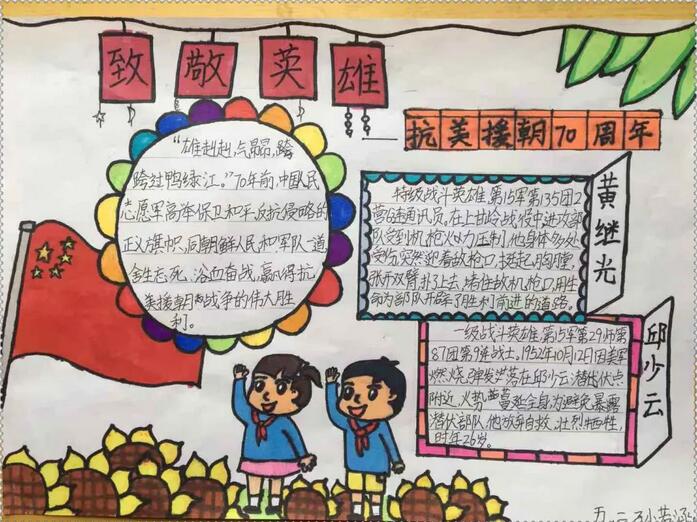 致敬英雄
抗美援朝70周年
"雄赳赳,气昂昂,跨
跨过鸭绿江。"70年前,中国人民
志愿军高举保卫和平,反抗侵略的
正义旗帜,同朝鲜人民和军队一道
舍生忘死,浴血奋战,赢得抗
美援朝战争的伟大胜
利。
黄继光
特级战斗英雄,第15军第135团2
营6连通讯员,在上甘岭战役中进攻部
队受到机枪火力压制,他身体多处
受伤,突然迎着敌枪口,挺起胸膛,
张开双臂扑了上去,堵住敌机枪口,用生
命为部队开辟了胜利前进的道路。
邱少云
一级战斗英雄,第15军第29师第
87团第9连战士,1952年10月12日因美军
燃烧弹发落在邱少云潜伏点
附近,火势蔓延全身,为避免暴露
潜伏部队,他放弃自救,壮烈牺牲,
时年26岁。
五.二 孙若涵